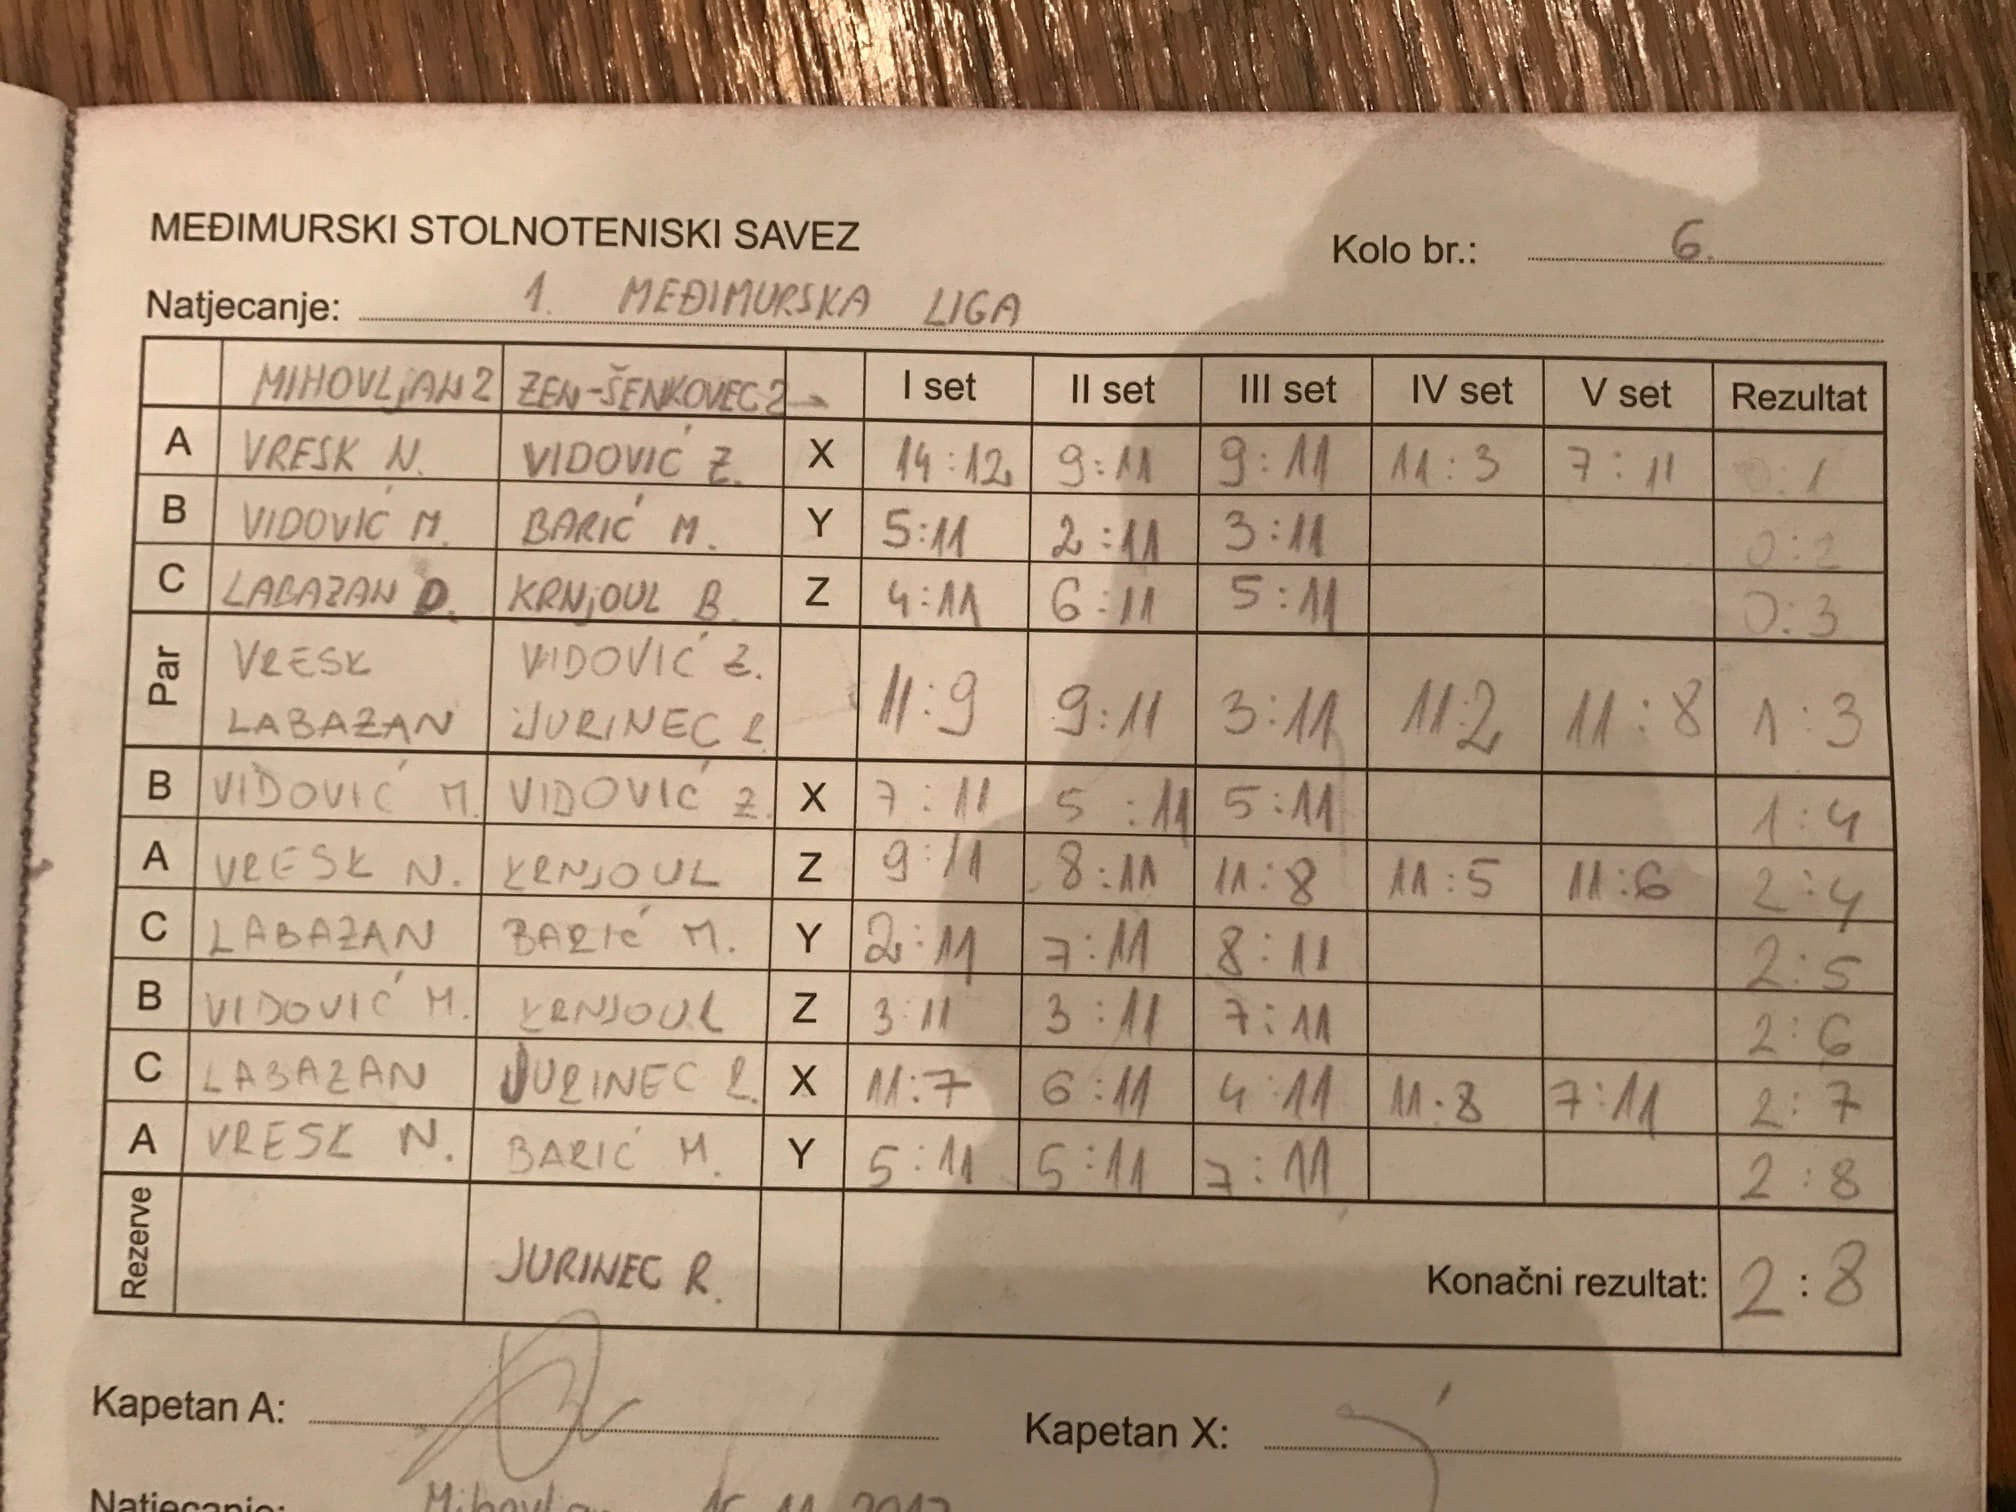 MEĐIMURSKI STOLNOTENISKI SAVEZ Kolo br.: 6.
Natjecanje: 1. MEĐIMURSKA LIGA
MIHOVLjAN 2 ZEN-ŠENKOVEC 2 I set II set III set IV set V set Rezultat
A VRESK N. VIDOVIĆ Z. X 14:12 9:11 9:11 11:3 7:11 0:1
B VIDOVIĆ M. BARIĆ M. Y 5:11 2:11 3:11 0:2
C LABAZAN D. KRNjOUL B. Z 4:11 6:11 5:11 0:3
Par VRESK VIDOVIĆ Z.
LABAZAN JURINEC R. 11:9 9:11 3:11 11:2 11:8 1:3
B VIDOVIĆ M. VIDOVIĆ Z. X 7:11 5:11 5:11 1:4
A VRESK N. KRNJOUL Z 9:11 8:11 11:8 11:5 11:6 2:4
C LABAZAN BARIĆ M. Y 2:11 7:11 8:11 2:5
B VIDOVIĆ M. KRNJOUL Z 3:11 3:11 7:11 2:6
C LABAZAN JURINEC R. X 11:7 6:11 4:11 11:8 7:11 2:7
A VRESK N. BARIĆ M. Y 5:11 5:11 7:11 2:8
Rezerve JURINEC R. Konačni rezultat: 2:8
Kapetan A: Kapetan X:
Natjecanje: